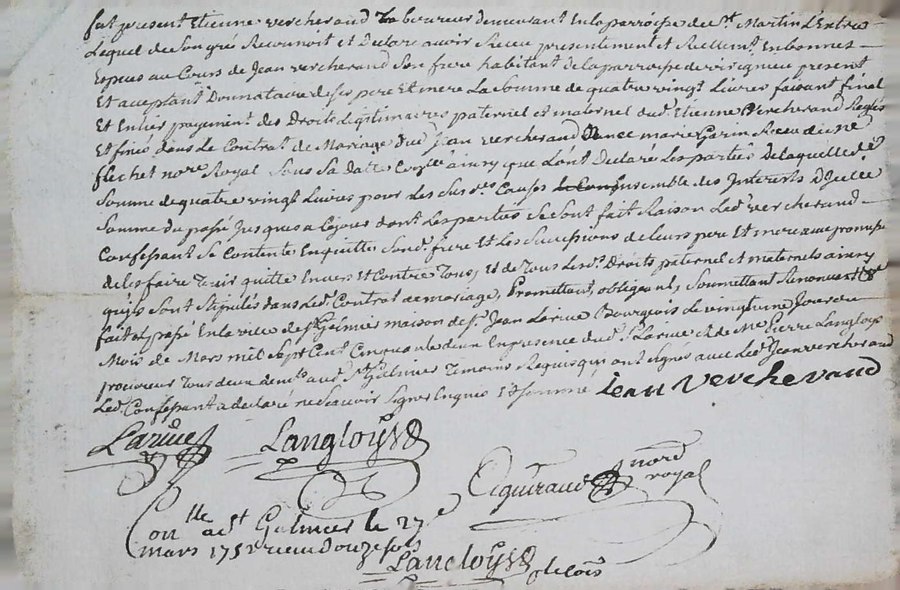 fut present Etienne vercherand laboureur demeurant En la parroisse de st Martin L'Estra
Lequel de son gré Reconnoit et Declare avoir Receu presentement et Reellemt En bonnes
Especes au Cours de Jean vercherand son frere habitant de la parroisse de virigneu present
Et acceptant Donnataire de ses pere Et mere La somme de quatre vingt Livres faisant final
Et Entier payement des Droits Legitimaires paternel et maternel dud. Etienne Vercherand Reglés
Et fixés dans le Contrat de Mariage dud Jean vercherand marie Garin Receu
flechet nore Royal sous sa datte ainsy que L'ont Declaré Les parties De laquelle de
somme de quatre vingt Livres pour Les Causes Ensemble des Interests D'jcelle
somme du passé Jusques a ce jour dont Les parties se sont fait Raison Led. vercherand
Confessant se Contente En quitte sond. frere Et Les successions de leurs pere Et mere aux promesse
de les faire Tenir quitte Envers Et Contre Tous, Et de Tous lesd. Droits paternel et maternels ainsy
qu'ils sont stipulés dans Led. Contrat de mariage, Promettant, obligeant, soumettant Renonceant &
fait et passé En la ville de st Galmier maison de sr. Jean Larue Bourgeois Le vingt une Jour du
Mois de Mars mil sept Cent Cinquante deux En presence dud. sr. Larue Et de Me Pierre Langlois
procureur Tous deux demts. aud. st Galmier Temoins Requis qui ont signés avec Led. Jean vercherand
Led. Confessant a declaré ne sçavoir signer Enquis Et somme Jean Verchevand
Larue Langloys
nore
royal
Conlle a st Galmier le 27e
mars 1752 receu douze sols
Langloys